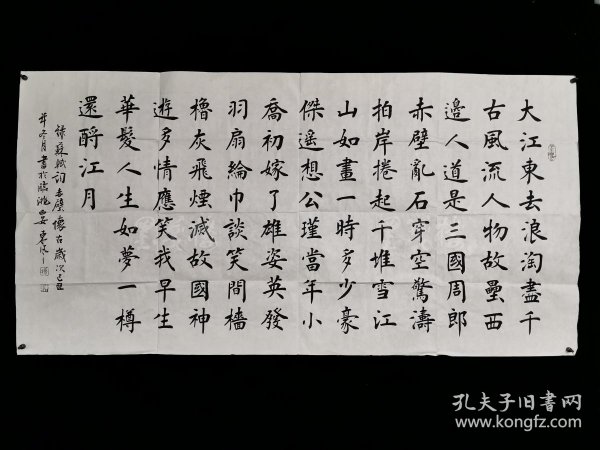 大江東去浪淘盡千
古風流人物故壘西
邊人道是三國周郎
赤壁亂石穿空驚濤
拍岸捲起千堆雪江
山如畫一時多少豪
傑遙想公瑾當年小
喬初嫁了雄姿英發
羽扇綸巾談笑間檣
櫓灰飛煙滅故國神
遊多情應笑我早生
華髮人生如夢一樽
還酹江月
蘇軾詞赤壁懷古歲次己丑
年冬月書於
孔夫子旧书网
www.kongfz.com